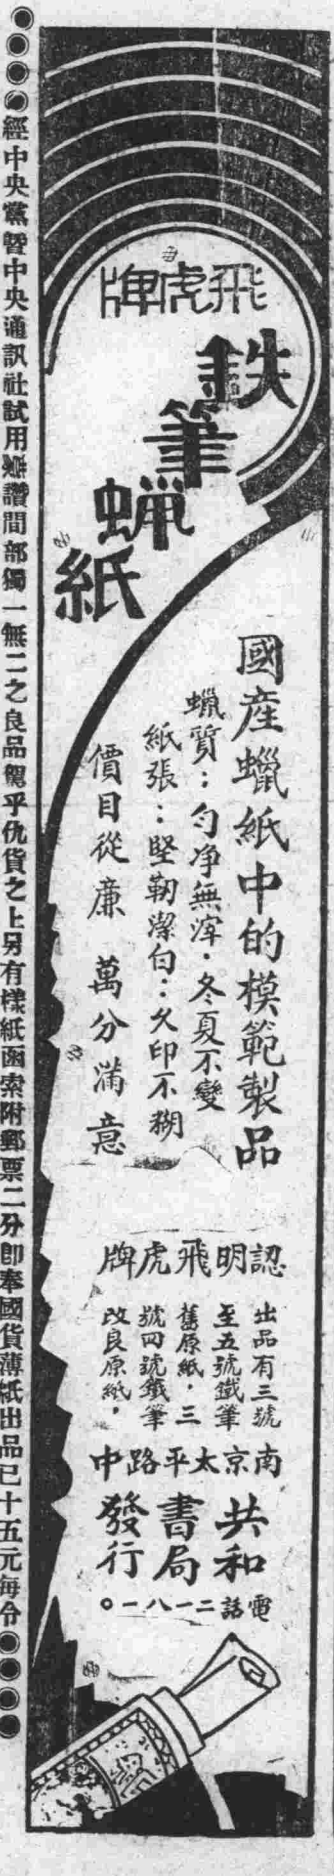 飛虎牌
鉄筆蠟紙
國産蠟紙中的模範製品
蠟質：勻净無滓．冬夏不變
紙張：堅韌潔白：久印不糊
價目從廉 萬分滿意
認明飛虎牌
出品有三號
至五號鐵筆
舊原紙．三
號四號鐵筆
改良原紙．
南京太平路中
共和
書局
發行
電話二一八一。
經中央黨暨中央通訊社試用讚間部獨一無二之良品駕乎仇貨之上另有樣紙函索附郵票二分即奉國貨薄紙出品已十五元每令